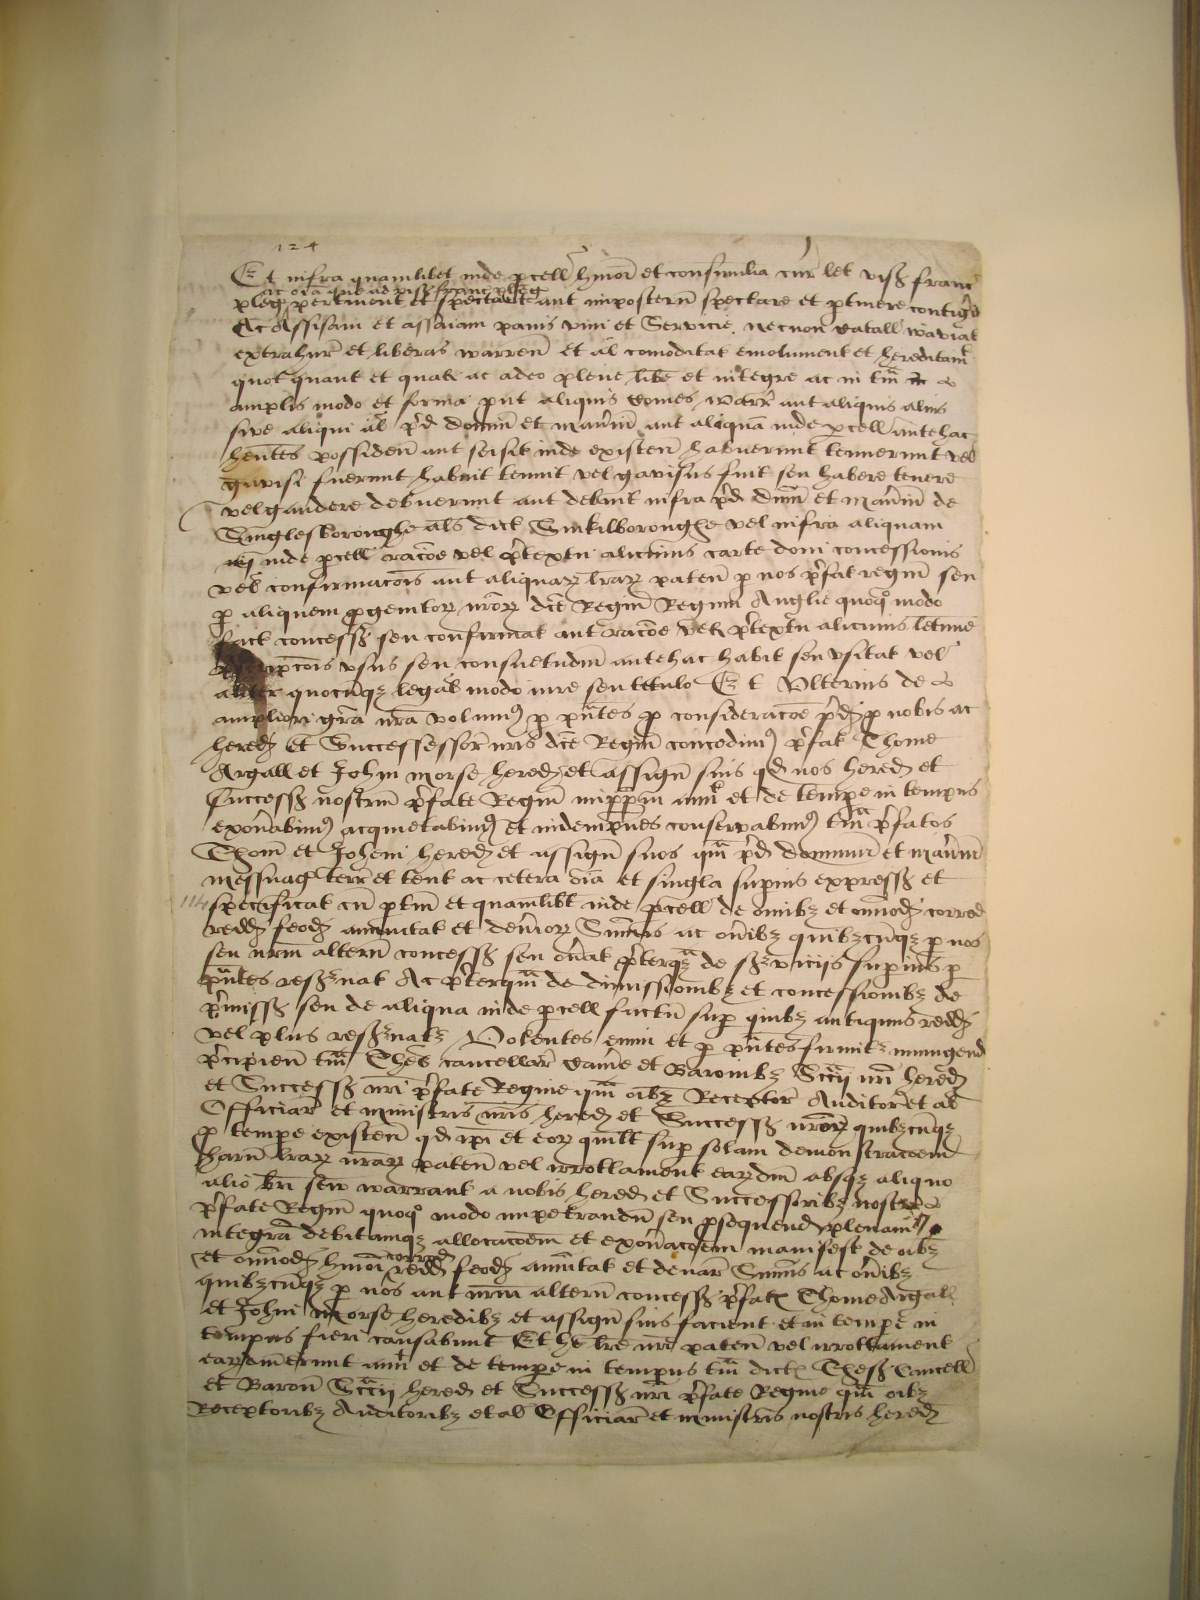 124
Et infra quamlibet inde pcell hmoi et consimilia cur let vis franc
ac oia que ad vis franc pleg
pleg pertinent et spectant aut imposterum spectare et ptinere contig'd
Ac Assisam et assaiam panis vini et Servicie necnon catall waviat
extrahur et liberas warren et al comoditat emolument et hereditamt
quot quant et qualia ac adeo plene libe et integre ac in tam
amplis modo et forma put aliquis comes warr aut aliquis alius
sive aliqui al p'd domin et man'iu aut aliqua inde pcell antehac
hentes possiden aut seisit inde existen habuerunt tenuerunt vel
gavisi fuerunt habuit tenuit vel gavisus fuit seu habere tenere
vel gaudere debuerunt aut debuit infra p'd dnm et man'iu de
Singlesboroughe als dict Sinkilboroughe vel infra aliquam
inde pcell racoe vel p'textu alicuius carte doni concessionis
vel confirmacois aut aliquar lrar paten p nos p'fat regin seu
p aliquem pgenitor nror dce Regin Regum Anglie quoquo modo
fact concess seu confirmat aut racoe vel p'textu alicuius letime
pscripcois usus seu consuetudin antehac habit seu usitat vel
aliter quocumqz legal modo iure seu titulo Et Ulterius de
ampliori gra nra volum9 p pntes p consideracoe p'd p nobis ac
hered et Successessor nris dce Regin concedim9 p'fat Thome
Argall et Johni morse hered et assign suis qd nos hered et
Success nostrm p'fate Regin imppm annt et de tempe in tempus
exon'abim9 acquietabim9 et indempnes conservabim9 tam p'fatos
Thom et Johem hered et assign suos qm p'd dominiu et man'iu
messuag terr et tent ac cetera oia et singla supius express et
114 specificat cu ptin et quamlibt inde pcell de omibz et omod corrod
redd feod annuitat et denior Sumis ac on'ibz quibzcumqz p nos
seu nrm alterm concess seu on'at p'terqz de s'viciis supius p
pntes res'nat Ac p'terqm de dimissionibz et concessionibz de
p'miss seu de aliqua inde pcell factu sup quibz antiquus redd
vel plus res'natz Volentes enim et p pntes firmitz iniungend
p'cipien tam Thes cancellar came et Baronibz Sccij nri hered
et Success nri p'fate Regine qm oibz Receptor Auditor et al
Officiar et ministris nris hered et Success nror quibzcumqz
p tempe existen qd ipi et eor quilt sup solam demonstracoem
harum lrar nrar paten vel irrotlament eardm absqz aliquo
alio bri seu warrant a nobis hered et Successoribz nostre
p'fate Regin quoquo modo impetrandu seu psequend plenam
integra debitamqz allocacoem et exon'acoem manifest de oibz
et omod hmoi corrod redd feod annuitat et denar Sumis ac on'ibz
quibzcumqz p nos aut nrm altern concess p'fat Thome Argall
et Johni Morse heredibz et assign suis facient et in tempe in
tempus fieri causabunt Et he lre nre paten vel irrotlament
eardm erunt annt et de tempe in tempus tam dict Thes Cancell
et Baron Sccij hered et Success nri p'fate Regine qm oibz
Receptoribz Auditoribz et al Officiar et ministris nostris hered